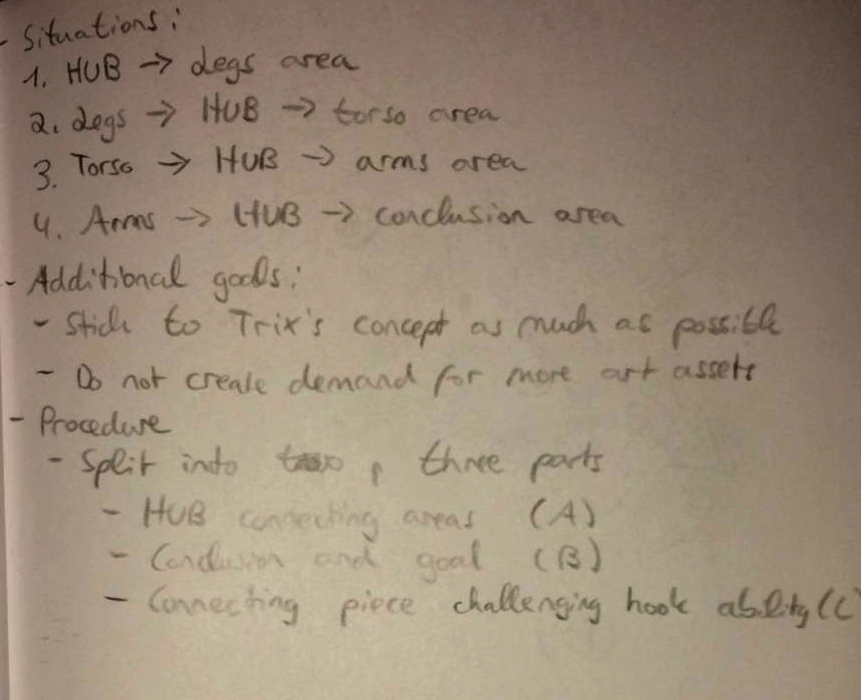 - Situations:
1. HUB → Legs area
2. Legs → HUB → torso area
3. Torso → HUB → arms area
4. Arms → HUB → conclusion area
- Additional goals:
- Stick to Trix's concept as much as possible
- Do not create demand for more art assets
- Procedure
- Split into two, three parts
- HUB connecting areas (A)
- Conclusion and goal (B)
- Connecting piece challenging hook ability (C